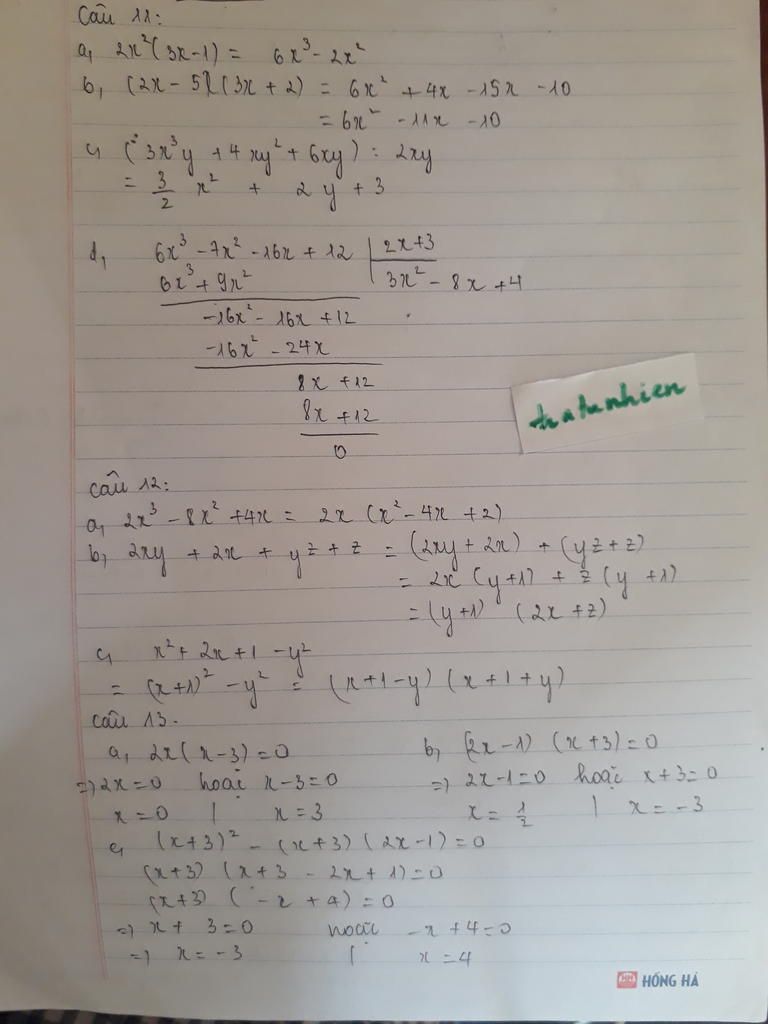 Câu 11:
a, 2x²(3x-1) = 6x³ - 2x²
b, (2x - 5)(3x + 2) = 6x² + 4x - 15x - 10
= 6x² - 11x - 10
c, (3x³y + 4xy² + 6xy) : 2xy
= 3/2 x² + 2y + 3
d, 6x³ - 7x² - 16x + 12 | 2x+3
6x³ + 9x² 3x² - 8x + 4
-16x² - 16x + 12
-16x² - 24x
8x + 12
8x + 12
0
Câu 12:
a, 2x³ - 8x² + 4x = 2x (x² - 4x + 2)
b, 2xy + 2x + yz + z = (2xy + 2x) + (yz + z)
= 2x (y+1) + z (y +1)
= (y+1) (2x + z)
c, x² + 2x + 1 - y²
= (x+1)² - y² = (x+1-y) (x+1+y)
Câu 13.
a, 2x(x-3) = 0 b, (2x-1) (x+3) = 0
=) 2x = 0 hoặc x-3 = 0 =) 2x-1 = 0 hoặc x+3 = 0
x = 0 | x = 3 x = 1/2 | x = -3
c, (x+3)² - (x+3) (2x-1) = 0
(x+3) (x+3 - 2x + 1) = 0
(x+3) (-x + 4) = 0
=) x + 3 = 0 hoặc -x + 4 = 0
=) x = -3 | x = 4
HH HỒNG HÀ